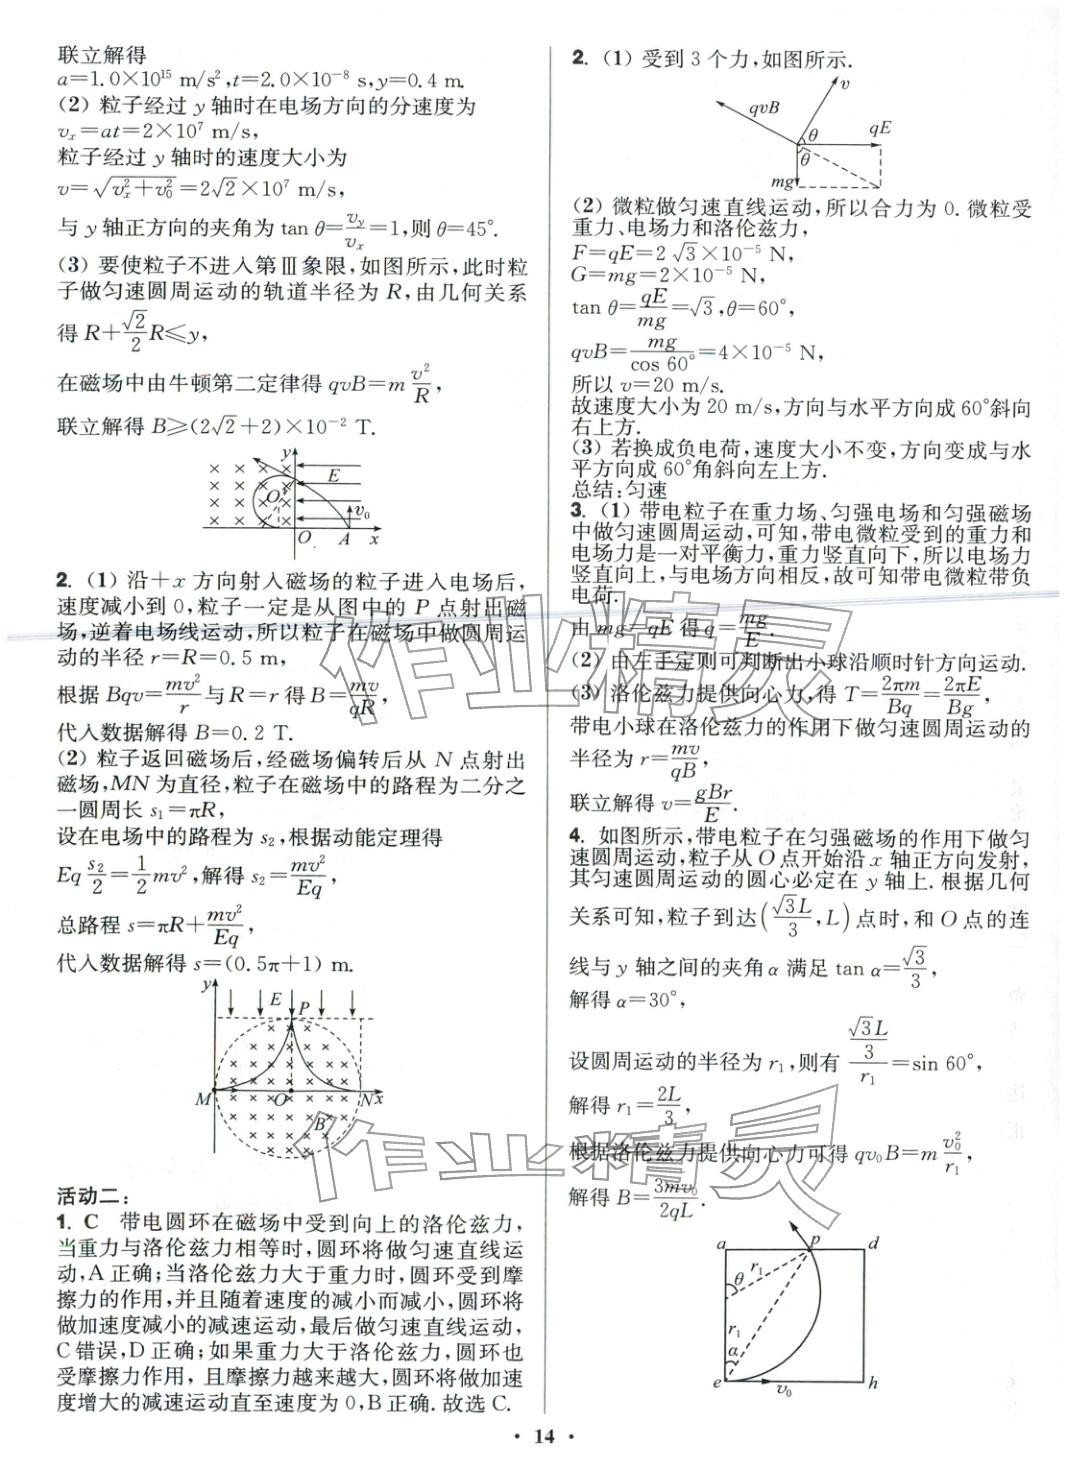 联立解得
a=1.0×10¹⁵ m/s²,t=2.0×10⁻⁸ s,y=0.4 m.
(2) 粒子经过 y 轴时在电场方向的分速度为
vₓ=at=2×10⁷ m/s,
粒子经过 y 轴时的速度大小为
v=√(vₓ²+v₀²)=2√2×10⁷ m/s,
与 y 轴正方向的夹角为 tan θ=v_y/vₓ=1,则 θ=45°.
(3) 要使粒子不进入第Ⅲ象限,如图所示,此时粒
子做匀速圆周运动的轨道半径为 R,由几何关系
得 R+(√2/2)R≤y,
在磁场中由牛顿第二定律得 qvB=m v²/R,
联立解得 B≥(2√2+2)×10⁻² T.
y
E
O′
v₀
O A x
2. (1) 沿+x 方向射入磁场的粒子进入电场后,
速度减小到 0,粒子一定是从图中的 P 点射出磁
场,逆着电场线运动,所以粒子在磁场中做圆周运
动的半径 r=R=0.5 m,
根据 Bqv=mv²/r 与 R=r 得 B=mv/qR,
代入数据解得 B=0.2 T.
(2) 粒子返回磁场后,经磁场偏转后从 N 点射出
磁场,MN 为直径,粒子在磁场中的路程为二分之
一圆周长 s₁=πR,
设在电场中的路程为 s₂,根据动能定理得
Eq s₂/2=1/2 mv²,解得 s₂=mv²/Eq,
总路程 s=πR+mv²/Eq,
代入数据解得 s=(0.5π+1) m.
y
E P
M O N x
B
活动二:
1. C 带电圆环在磁场中受到向上的洛伦兹力,
当重力与洛伦兹力相等时,圆环将做匀速直线运
动,A 正确;当洛伦兹力大于重力时,圆环受到摩
擦力的作用,并且随着速度的减小而减小,圆环将
做加速度减小的减速运动,最后做匀速直线运动,
C 错误,D 正确;如果重力大于洛伦兹力,圆环也
受摩擦力作用,且摩擦力越来越大,圆环将做加速
度增大的减速运动直至速度为 0,B 正确.故选 C.
2. (1) 受到 3 个力,如图所示.
v
qvB
θ qE
θ
mg
(2) 微粒做匀速直线运动,所以合力为 0.微粒受
重力、电场力和洛伦兹力,
F=qE=2√3×10⁻⁵ N,
G=mg=2×10⁻⁵ N,
tan θ=qE/mg=√3,θ=60°,
qvB=mg/cos 60°=4×10⁻⁵ N,
所以 v=20 m/s.
故速度大小为 20 m/s,方向与水平方向成 60°斜向
右上方.
(3) 若换成负电荷,速度大小不变,方向变成与水
平方向成 60°角斜向左上方.
总结:匀速
3. (1) 带电粒子在重力场、匀强电场和匀强磁场
中做匀速圆周运动,可知,带电微粒受到的重力和
电场力是一对平衡力,重力竖直向下,所以电场力
竖直向上,与电场方向相反,故可知带电微粒带负
电荷.
由 mg=qE 得 q=mg/E.
(2) 由左手定则可判断出小球沿顺时针方向运动.
(3) 洛伦兹力提供向心力,得 T=2πm/Bq=2πE/Bg,
带电小球在洛伦兹力的作用下做匀速圆周运动的
半径为 r=mv/qB,
联立解得 v=gBr/E.
4. 如图所示,带电粒子在匀强磁场的作用下做匀
速圆周运动,粒子从 O 点开始沿 x 轴正方向发射,
其匀速圆周运动的圆心必定在 y 轴上.根据几何
关系可知,粒子到达(√3L/3,L)点时,和 O 点的连
线与 y 轴之间的夹角 α 满足 tan α=√3/3,
解得 α=30°,
设圆周运动的半径为 r₁,则有 (√3L/3)/r₁=sin 60°,
解得 r₁=2L/3,
根据洛伦兹力提供向心力可得 qv₀B=m v₀²/r₁,
解得 B=3mv₀/2qL.
a p d
r₁
θ
r₁
α
e v₀ h
作业精灵
作业精灵
• 14 •